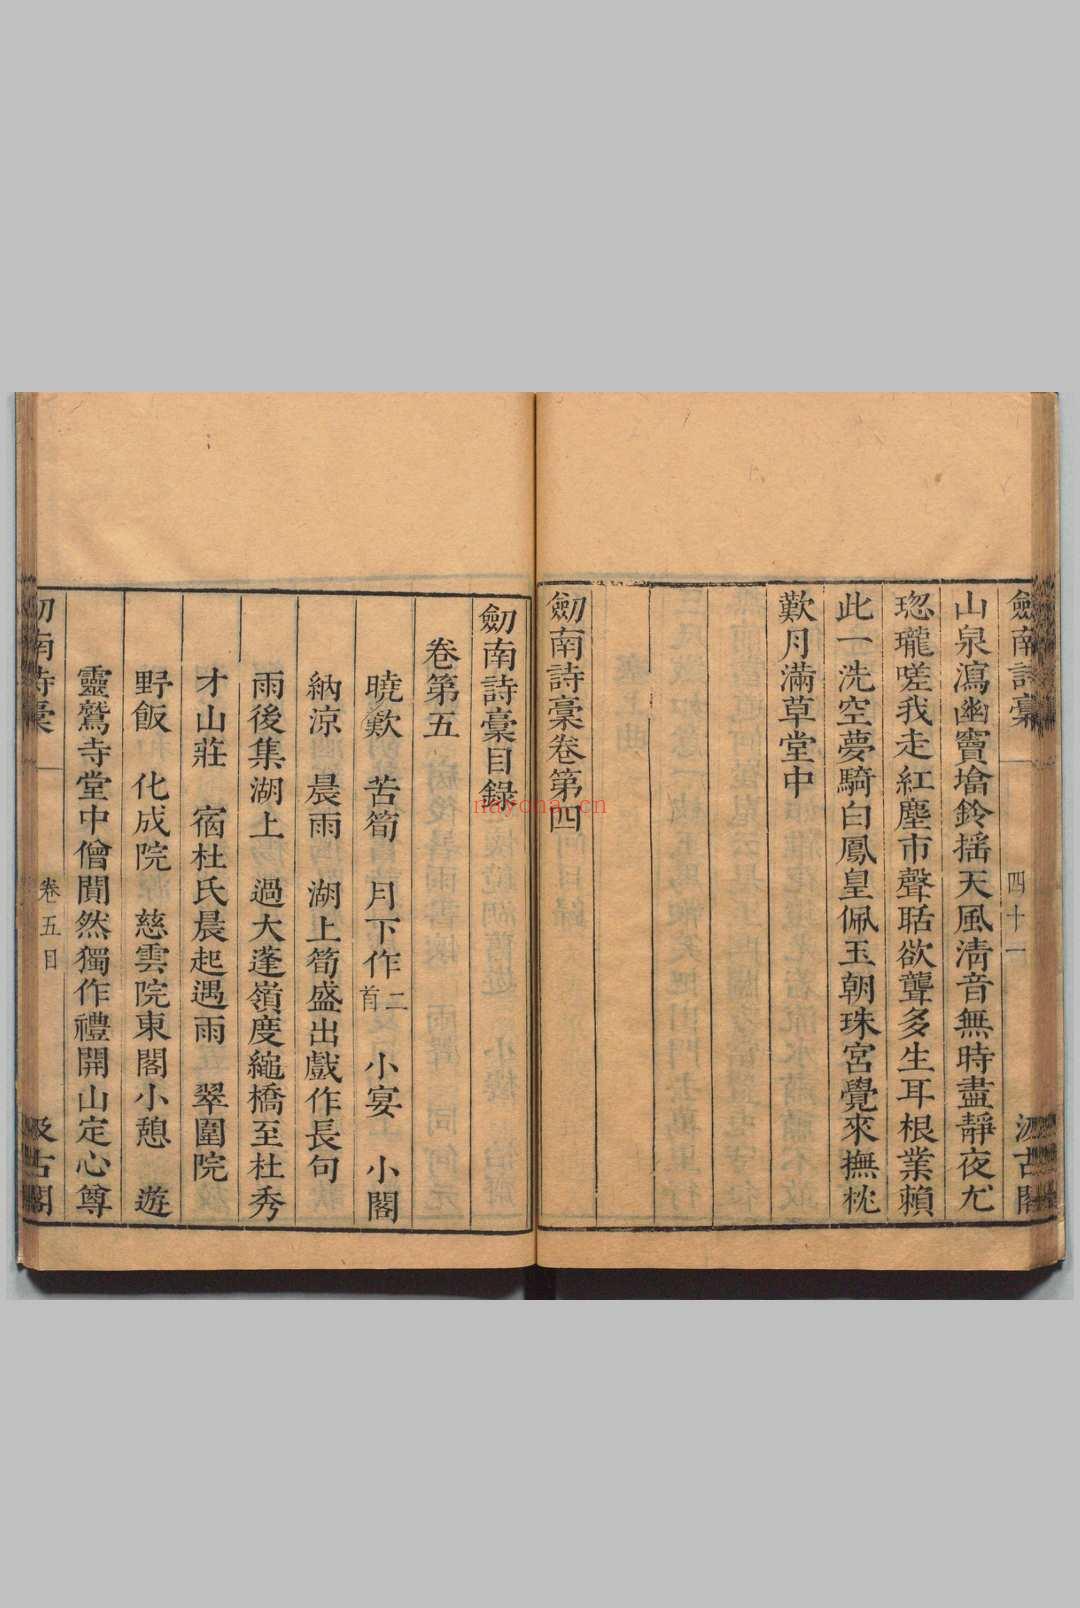 劒南詩稾
四十一
汲古閣
山泉瀉幽竇墖鈴揺天風淸音無時盡靜夜尤
璁瓏嗟我走紅塵市聲聒欲聾多生耳根業賴
此一洗空夢騎白鳳皇佩玉朝珠宮覺來撫枕
歎月滿草堂中
劒南詩稾卷第四
劒南詩稾目錄
卷第五
曉歎 苦筍 月下作二首 小宴 小閣
納凉 晨雨 湖上筍盛出戲作長句
雨後集湖上 過大蓬嶺度繩橋至杜秀
才山莊 宿杜氏晨起遇雨 翠圍院
野飯 化成院 慈雲院東閣小憩 遊
靈鷲寺堂中僧闃然獨作禮開山定心尊
劒南詩稾
卷五目
汲古閣
nayona.cn